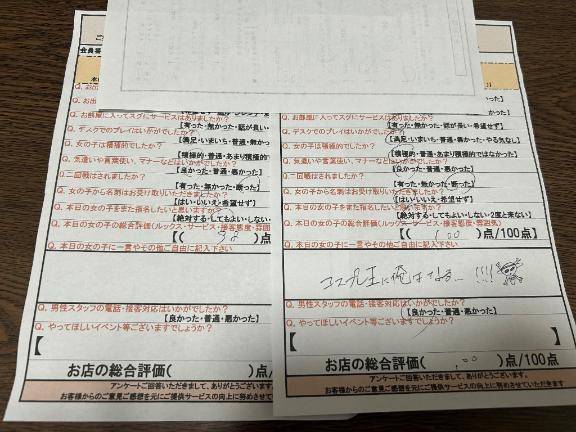 会員番
Q. お出
Q. お出
Q. お部屋に入ってスグにサービスはありましたか?
Q. デスクでのプレイはいかがでしたか?
【満足・いまいち・普通・無かっ
Q. 女の子は積極的でしたか?
【積極的・普通・あまり積極的
Q. 気遣いや言葉使い、マナーなどはいかがでしたか?
【良かった・普通・悪かった】
Q. 二回戦はされましたか?
【有った・無かった・断った】
Q. 女の子から名刺はお受け取りいただきましたか?
【はい・いいえ・希望せず】
Q. 本日の女の子をまた指名したいと思いますか?
【絶対する・してもよい・しない・
Q. 本日の女の子の総合評価(ルックス・サービス・接客態度・雰囲
【( 38 )点
Q. 本日の女の子に一言やその他ご自由に記入下さい
Q. 男性スタッフの電話・接客対応はいかがでしたか?
【良かった・普通・悪かった】
Q. やってほしいイベント等ございますでしょうか?
【
お店の総合評価( )点/10
アンケートご回答いただきまして、ありがとうございます。
お客様からのご意見ご感想を元にご提供サービスの向上に努めさせて
かった】
Q. お部屋に入ってスグにサービスはありましたか?
【有った・無かった・話が長い・希望せず】
Q. デスクでのプレイはいかがでしたか?
【満足・いまいち・普通・無かった・やる気なし】
Q. 女の子は積極的でしたか?
【積極的・普通・あまり積極的ではなかった】
Q. 気遣いや言葉使い、マナーなどはいかがでしたか?
【良かった・普通・悪かった】
Q. 二回戦はされましたか?
【有った・無かった・断った】
Q. 女の子から名刺はお受け取りいただきましたか?
【はい・いいえ・希望せず】
Q. 本日の女の子をまた指名したいと思いますか?
【絶対する・してもよい・しない・2度と来ない】
Q. 本日の女の子の総合評価(ルックス・サービス・接客態度・雰囲気)
【( 100 )点/100点】
Q. 本日の女の子に一言やその他ご自由に記入下さい
コスプレ王に俺はなる… !!!!
Q. 男性スタッフの電話・接客対応はいかがでしたか?
【良かった・普通・悪かった】
Q. やってほしいイベント等ございますでしょうか?
【 】
お店の総合評価( 100 )点/100点
アンケートご回答いただきまして、ありがとうございます。
お客様からのご意見ご感想を元にご提供サービスの向上に努めさせていただきます